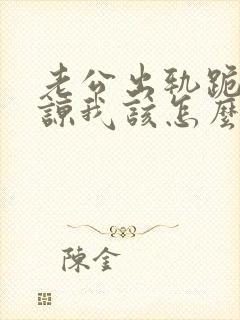 老公出轨跪
諒我該怎麼
陳金